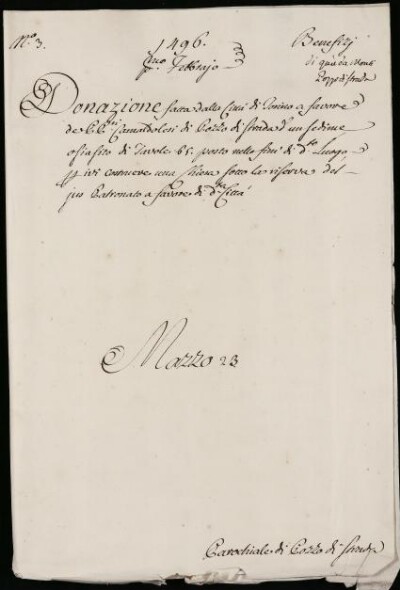 N.º 3.
1496.
p.mo Febbrajo
Benefizj
di quà da Monti
Pozzo di strada
Donazione fatta dalla Città di Torino a favore
de PP. Camaldolesi di Pozzo di strada d'un sedime
ossia sito di Tavole 65. posto nelle fini di d.to Luogo,
p ivi construere una Chiesa sotto la riserva del
jus Patronato a favore di d.ta Città
Mazzo 23
Parochiale di Pozzo di strada